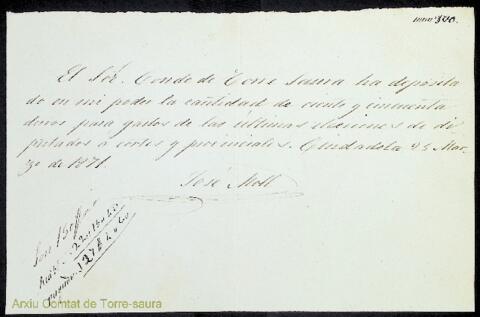 num 340.
El Sór. Conde de Torre Saura ha deposita
do en mi poder la cantidad de ciento y cincuenta
duros para gastos de las últimas elecciones de di
putados a cortes y provinciales. Ciudadela 25 Mar
zo de 1871.
José Moll
Son
Arxiu Comtat de Torre-saura